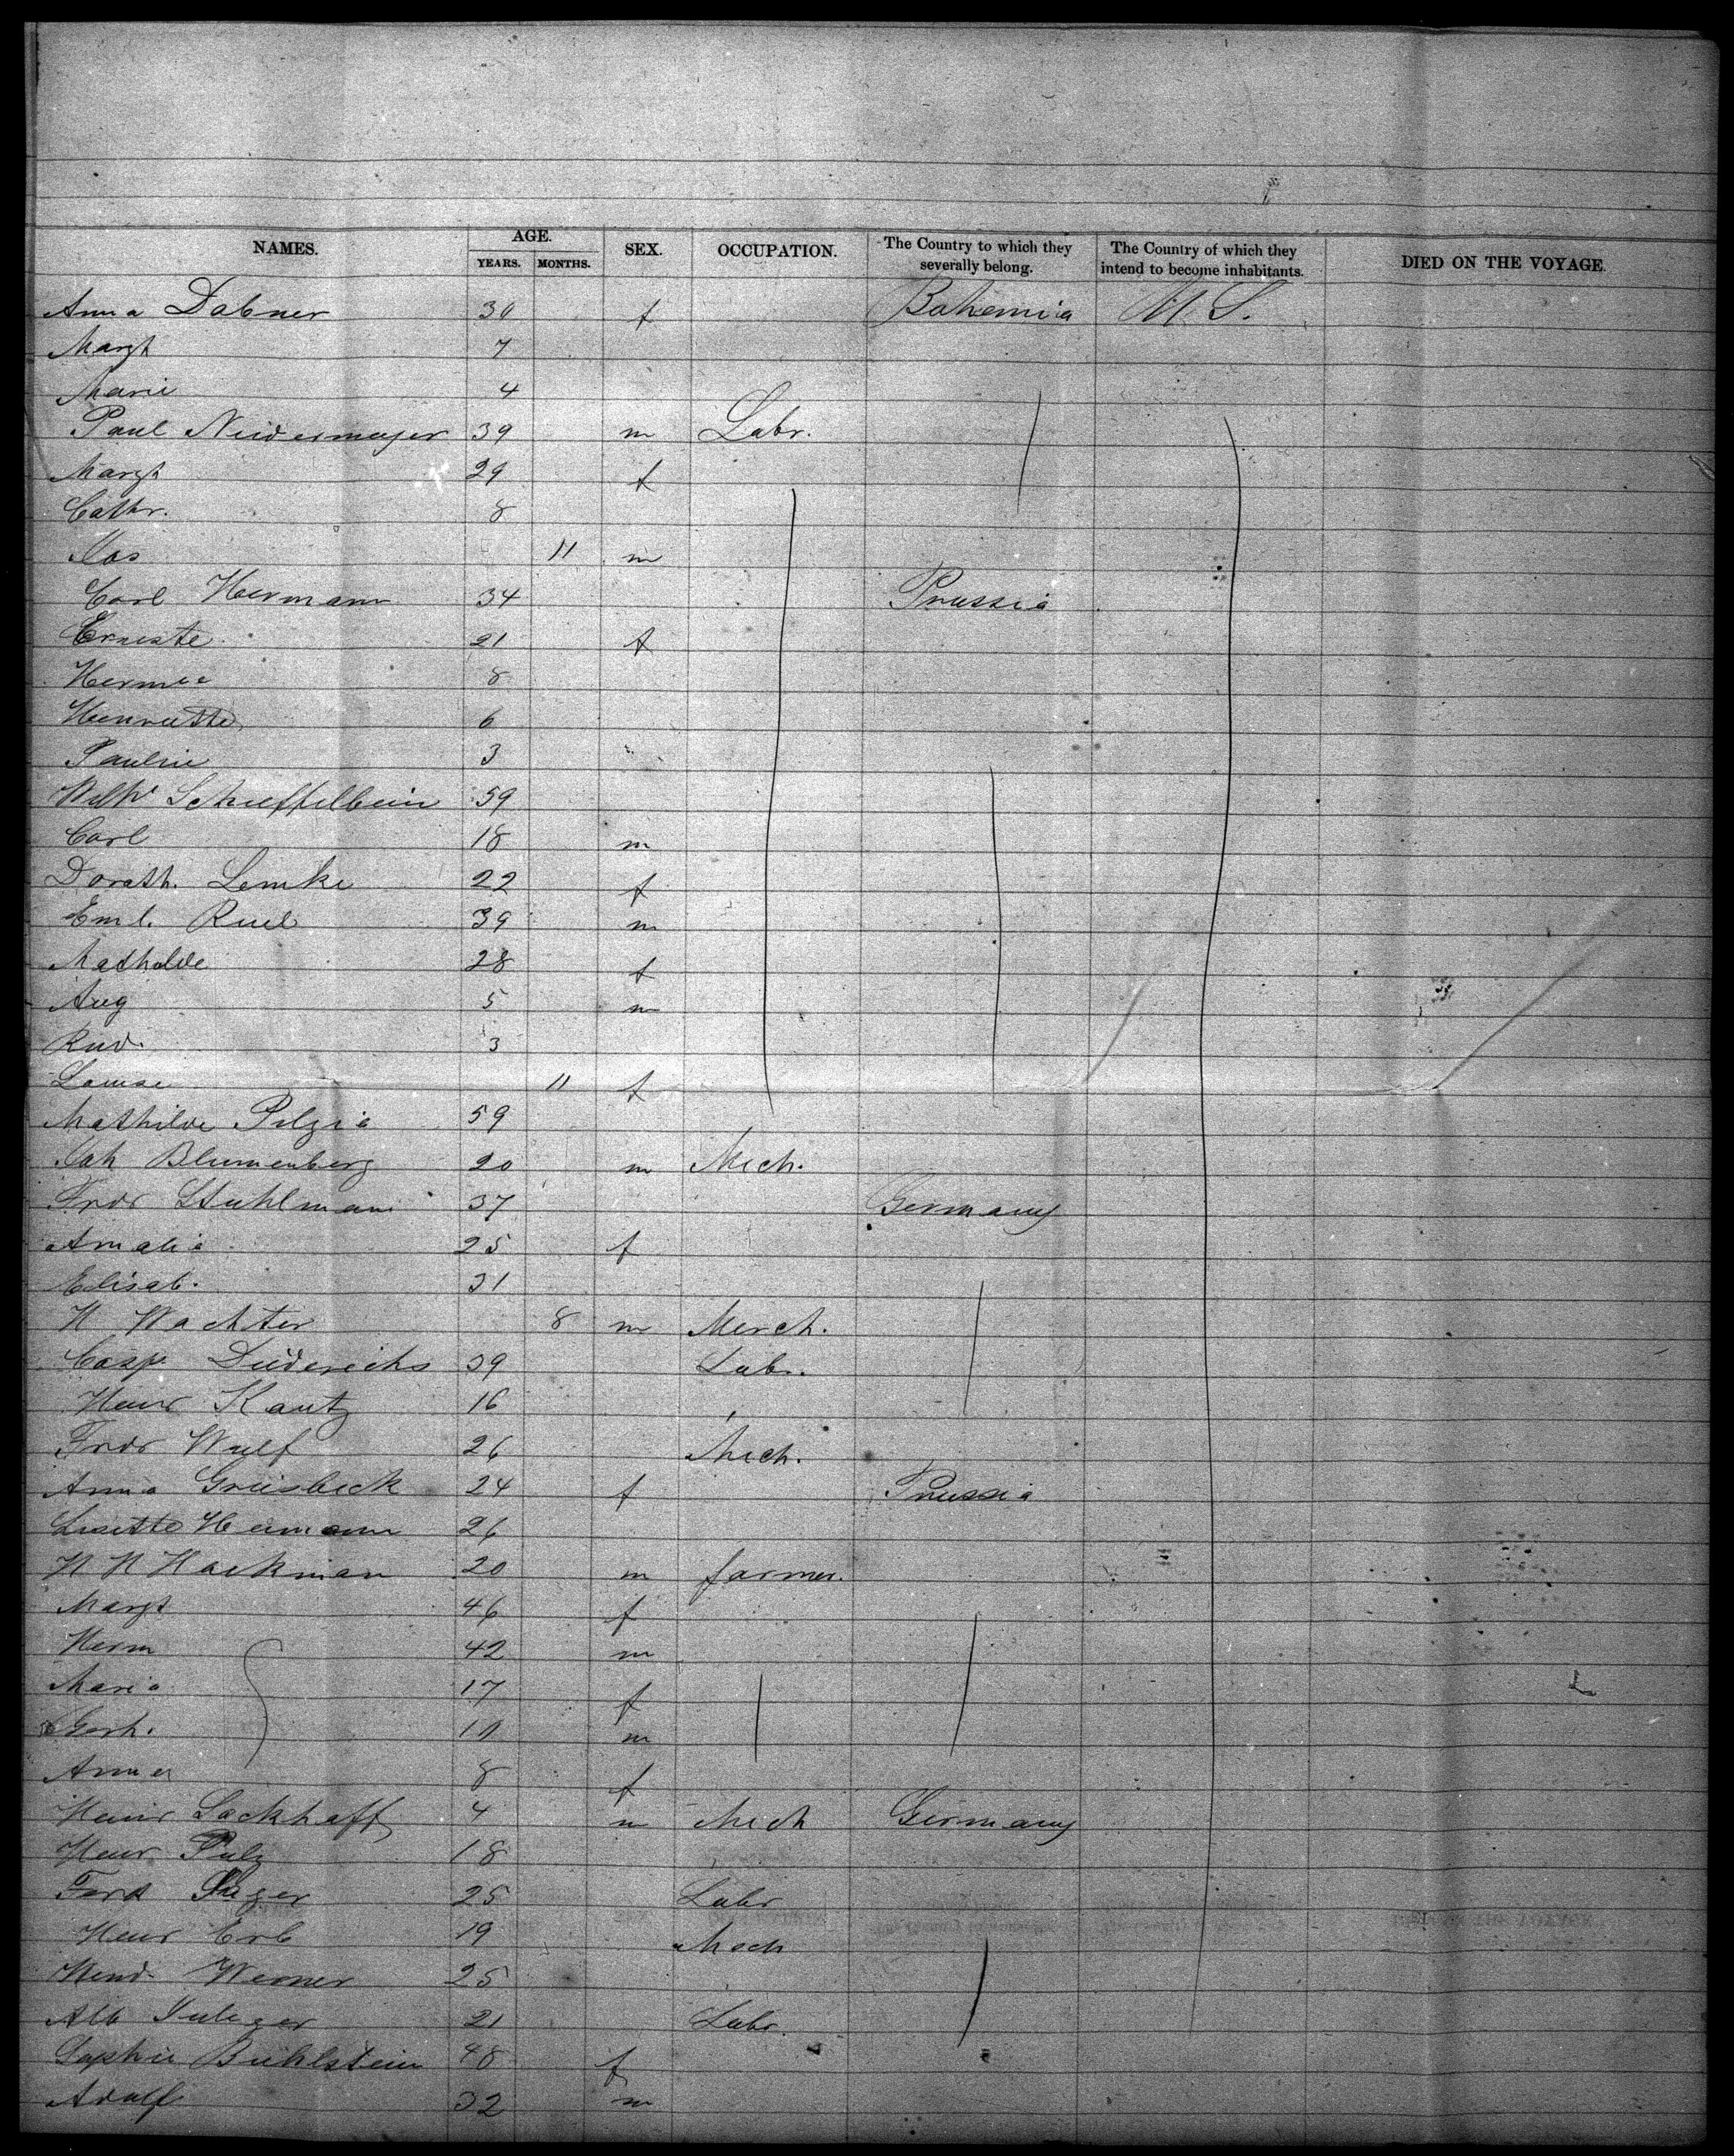 NAMES. AGE. SEX. OCCUPATION. The Country to which they severally belong. The Country of which they intend to become inhabitants. DIED ON THE VOYAGE.
YEARS. MONTHS.
Anna Dabner 30 f Bohemia U. S.
Margt 7
Marie 4
Paul Niedermayer 39 m Labr.
Margt 29 f
Cathr. 8
Jos 11 m
Carl Hermann 34 Prussia
Erneste 21 f
Hermne 8
Henriette 6
Pauline 3
Wilh Schieffelbein 59
Carl 18 m
Doroth. Lemke 22 f
Eml. Ruel 39 m
Mathilde 28 f
Aug 5 m
Rud. 3
Louise 11 f
Mathilde 59
Joh Blumenberg 20 m Mech.
Fredr Stuhlmann 37 Germany
Amalia 25 f
Elisab. 31
H Wachter 8 m Merch.
Casp. Diederichs 39 Labr.
Heinr Kautz 16
Fredr Wulf 26 Mech.
Anna Griesbeck 24 f Prussia
Lisette Heimann 26
H H Hackman 20 m farmer.
Margt 46 f
Herm 42 m
Maria 17 f
Gerh. 10 m
Anna 8 f
Heinr Lockhaff 4 m Mech Germany
Heinr Pulz 18
Ferd 25 Labr
Heinr Erb 19 Mech
Hend. Werner 25
Alb 21 Labr.
Sophie Buhlstein 48 f
Adolf 32 m